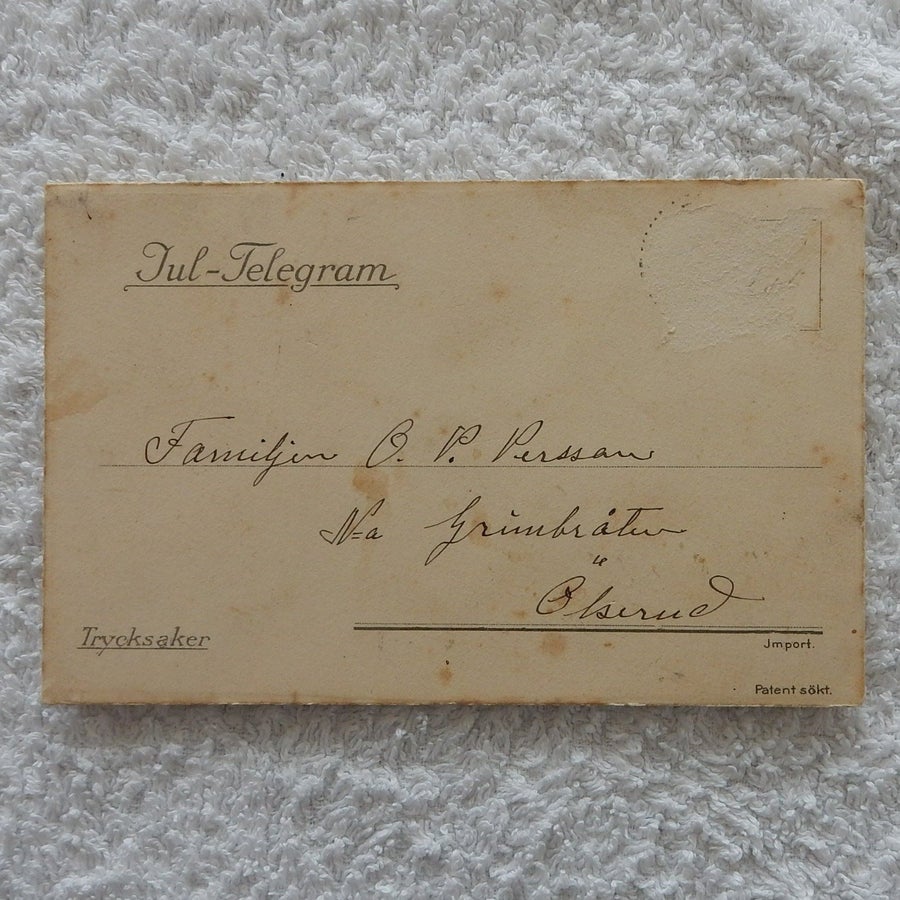 Jul-Telegram
Familjen O. P. Persson
N=a Grimbråten
Ölserud
Trycksaker
Import.
Patent sökt.